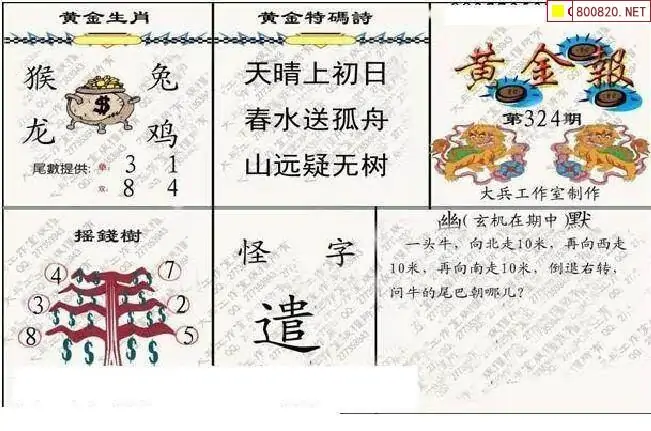 黄金生肖
猴 兔
龙 鸡
尾數提供: 单: 3 1
双: 8 4
黄金特碼詩
天晴上初日
春水送孤舟
山远疑无树
800820.NET
黄金報
第324期
大兵工作室制作
摇錢樹
4 7
3 2
8 5
怪 字
遣
幽(玄机在期中)默
一头牛，向北走10米，再向西走
10米，再向南走10米，倒退右转，
问牛的尾巴朝哪儿?